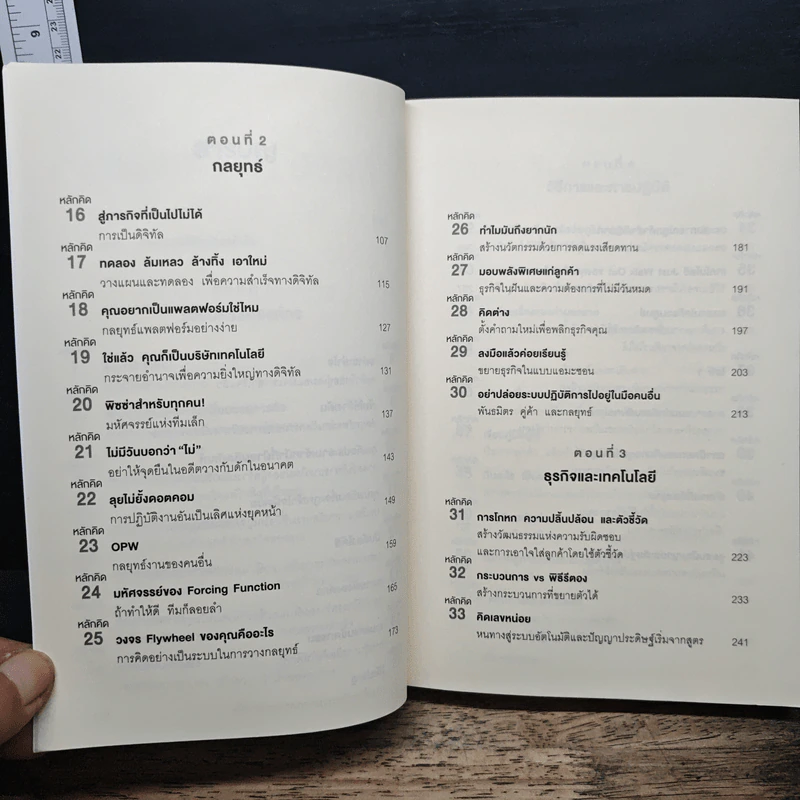 ตอนที่ 2
กลยุทธ์
หลักคิด
16 สู่ภารกิจที่เป็นไปไม่ได้
การเป็นดิจิทัล 107
หลักคิด
17 ทดลอง ล้มเหลว ล้างทิ้ง เอาใหม่
วางแผนและทดลอง เพื่อความสำเร็จทางดิจิทัล 115
หลักคิด
18 คุณอยากเป็นแพลตฟอร์มใช่ไหม
กลยุทธ์แพลตฟอร์มอย่างง่าย 127
หลักคิด
19 ใช่แล้ว คุณก็เป็นบริษัทเทคโนโลยี
กระจายอำนาจเพื่อความยิ่งใหญ่ทางดิจิทัล 131
หลักคิด
20 พิซซ่าสำหรับทุกคน!
มหัศจรรย์แห่งทีมเล็ก 137
หลักคิด
21 ไม่มีวันบอกว่า “ไม่”
อย่าให้จุดยืนในอดีตวางกับดักในอนาคต 143
หลักคิด
22 ลุยไม่ยั้งดอตคอม
การปฏิบัติงานอันเป็นเลิศแห่งยุคหน้า 149
หลักคิด
23 OPW
กลยุทธ์งานของคนอื่น 159
หลักคิด
24 มหัศจรรย์ของ Forcing Function
ถ้าทำให้ดี ทีมก็ลอยลำ 165
หลักคิด
25 วงจร Flywheel ของคุณคืออะไร
การคิดอย่างเป็นระบบในการวางกลยุทธ์ 173
หลักคิด
26 ทำไมมันถึงยากนัก
สร้างนวัตกรรมด้วยการลดแรงเสียดทาน 181
หลักคิด
27 มอบพลังพิเศษแก่ลูกค้า
ธุรกิจในฝันและความต้องการที่ไม่มีวันหมด 191
หลักคิด
28 คิดต่าง
ตั้งคำถามใหม่เพื่อพลิกธุรกิจคุณ 197
หลักคิด
29 ลงมือแล้วค่อยเรียนรู้
ขยายธุรกิจในแบบแอมะซอน 203
หลักคิด
30 อย่าปล่อยระบบปฏิบัติการไปอยู่ในมือคนอื่น
พันธมิตร คู่ค้า และกลยุทธ์ 213
ตอนที่ 3
ธุรกิจและเทคโนโลยี
หลักคิด
31 การโกหก ความปลิ้นปล้อน และตัวชี้วัด
สร้างวัฒนธรรมแห่งความรับผิดชอบ
และการเอาใจใส่ลูกค้าโดยใช้ตัวชี้วัด 223
หลักคิด
32 กระบวนการ vs พิธีรีตอง
สร้างกระบวนการที่ขยายตัวได้ 233
หลักคิด
33 คิดเลขหน่อย
หนทางสู่ระบบอัตโนมัติและปัญญาประดิษฐ์เริ่มจากสูตร 241
9
23
22